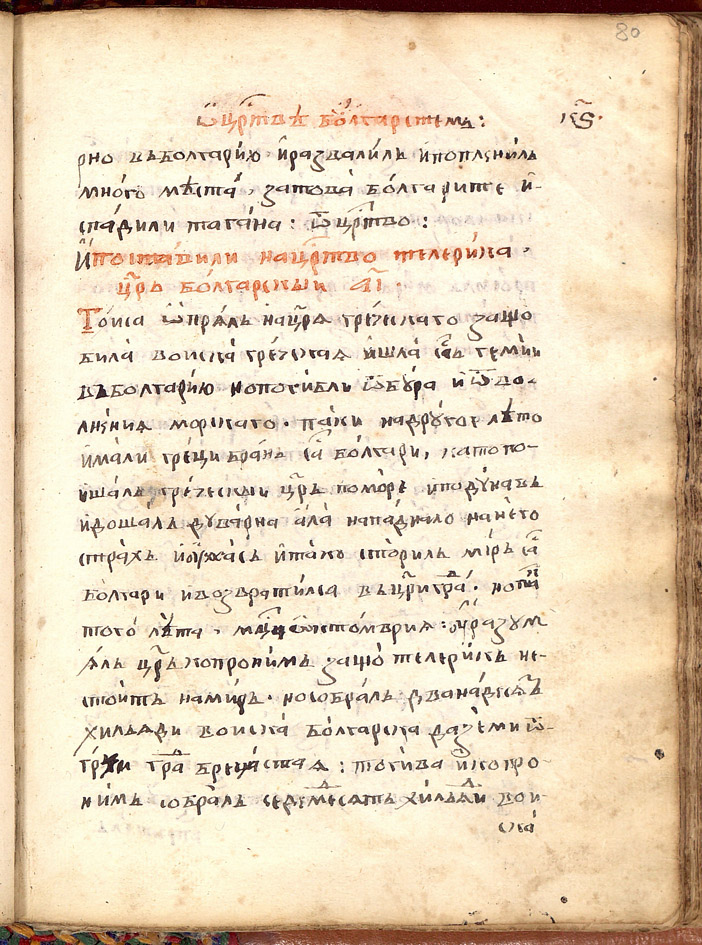 80
Ѿ црⷭ҇твѣ болгарстемъ: к҃ѕ.
рно въ болгарїю и развалилъ и поплѣнилъ
много мѣста, затова болгарите и-
спадили пагана: ѿ црⷭ҇тво:
И поставили на црⷭ҇тво телерика.
цр҃ь болгарскыи а҃і.
Тоиса ѿпрялъ на цр҃я греческаго защо
била воиска греческая ишла съ гемїи
въ болгарию но погибли ѿ бура и ѿ во-
лнения морскаго. паки на другое лѣто
имали греци брань са болгари, като по-
ишалъ греческыи цр҃ь поморе и по дунавъ
и дошалъ до варна ала нападнало на него
страхъ и оужасъ и тако сторилъ миръ са
болгари и возвратилса въ цр҃игра. но па
того лѣта, мц҃а октомврия: оуразум
ялъ цр҃ь копронимъ защо телерикъ не-
стоитъ на миръ. но собралъ дванадесятъ
хиляди воиска болгарска да земи ѿ-
грхи гра брецастая: тогива и копро-
нимъ собралъ седемесятъ хиляи вои
ска